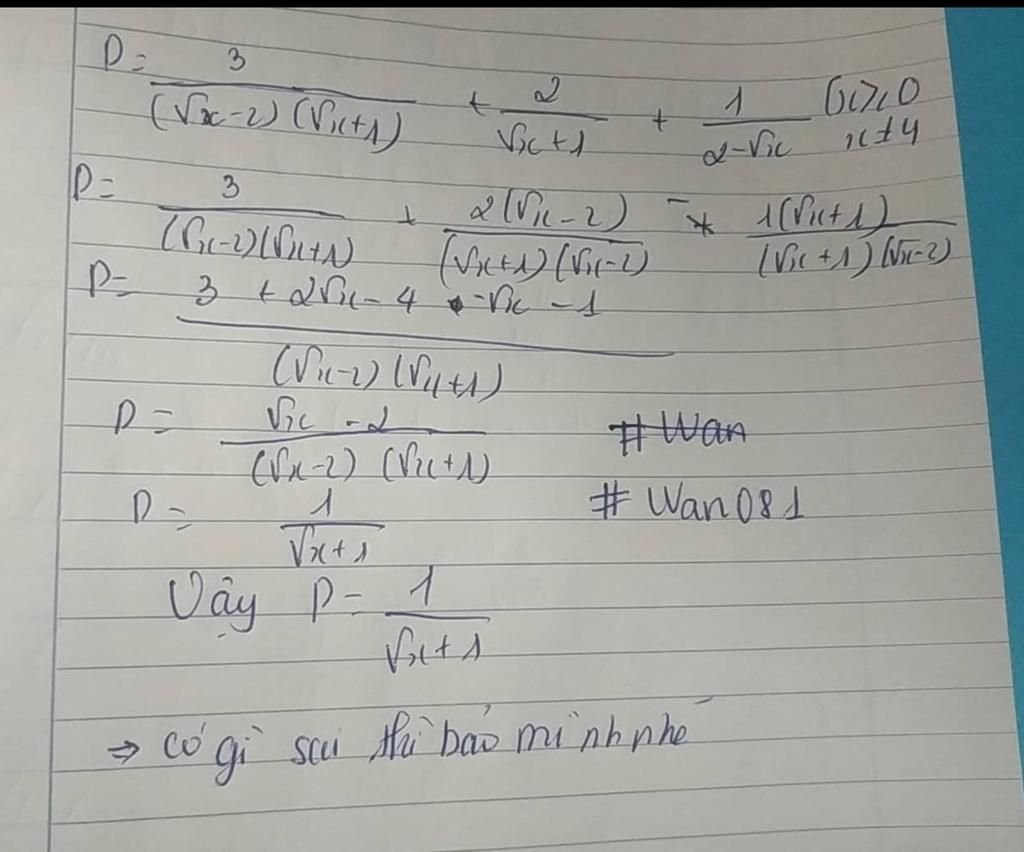 P = 3/((√x-2)(√x+1)) + 2/(√x+1) + 1/(2-√x) (x≥0
x≠4
P = 3/((√x-2)(√x+1)) + 2(√x-2)/((√x+1)(√x-2)) - 1(√x+1)/((√x+1)(√x-2))
P = (3 + 2√x - 4 - √x - 1)/((√x-2)(√x+1))
P = (√x-2)/((√x-2)(√x+1))
# Wan
P = 1/(√x+1)
# Wan081
Vậy P = 1/(√x+1)
⇒ có gì sai thì bảo mình nhé